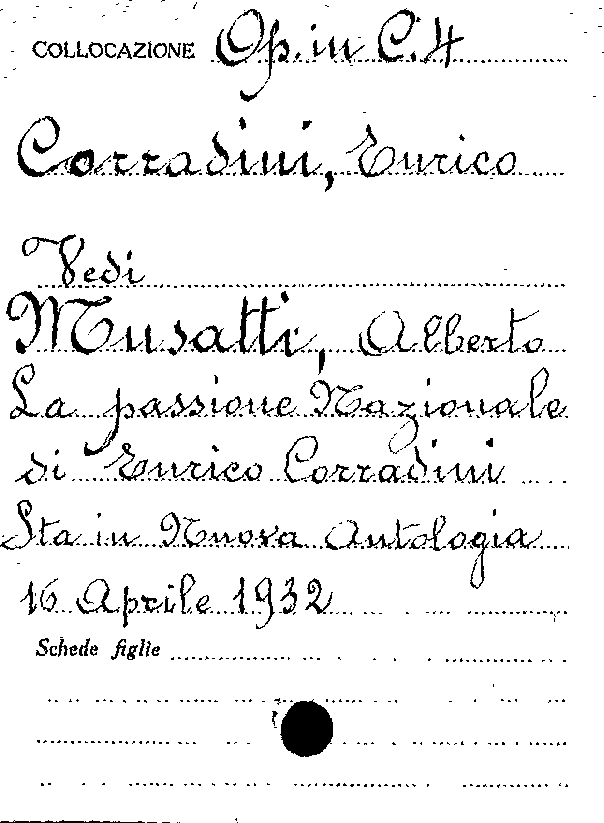 COLLOCAZIONE Op. in C. 4
Corradini, Enrico
Vedi
Musatti, Alberto
La passione Nazionale
di Enrico Corradini
Sta in Nuova Antologia
16 Aprile 1932
Schede figlie